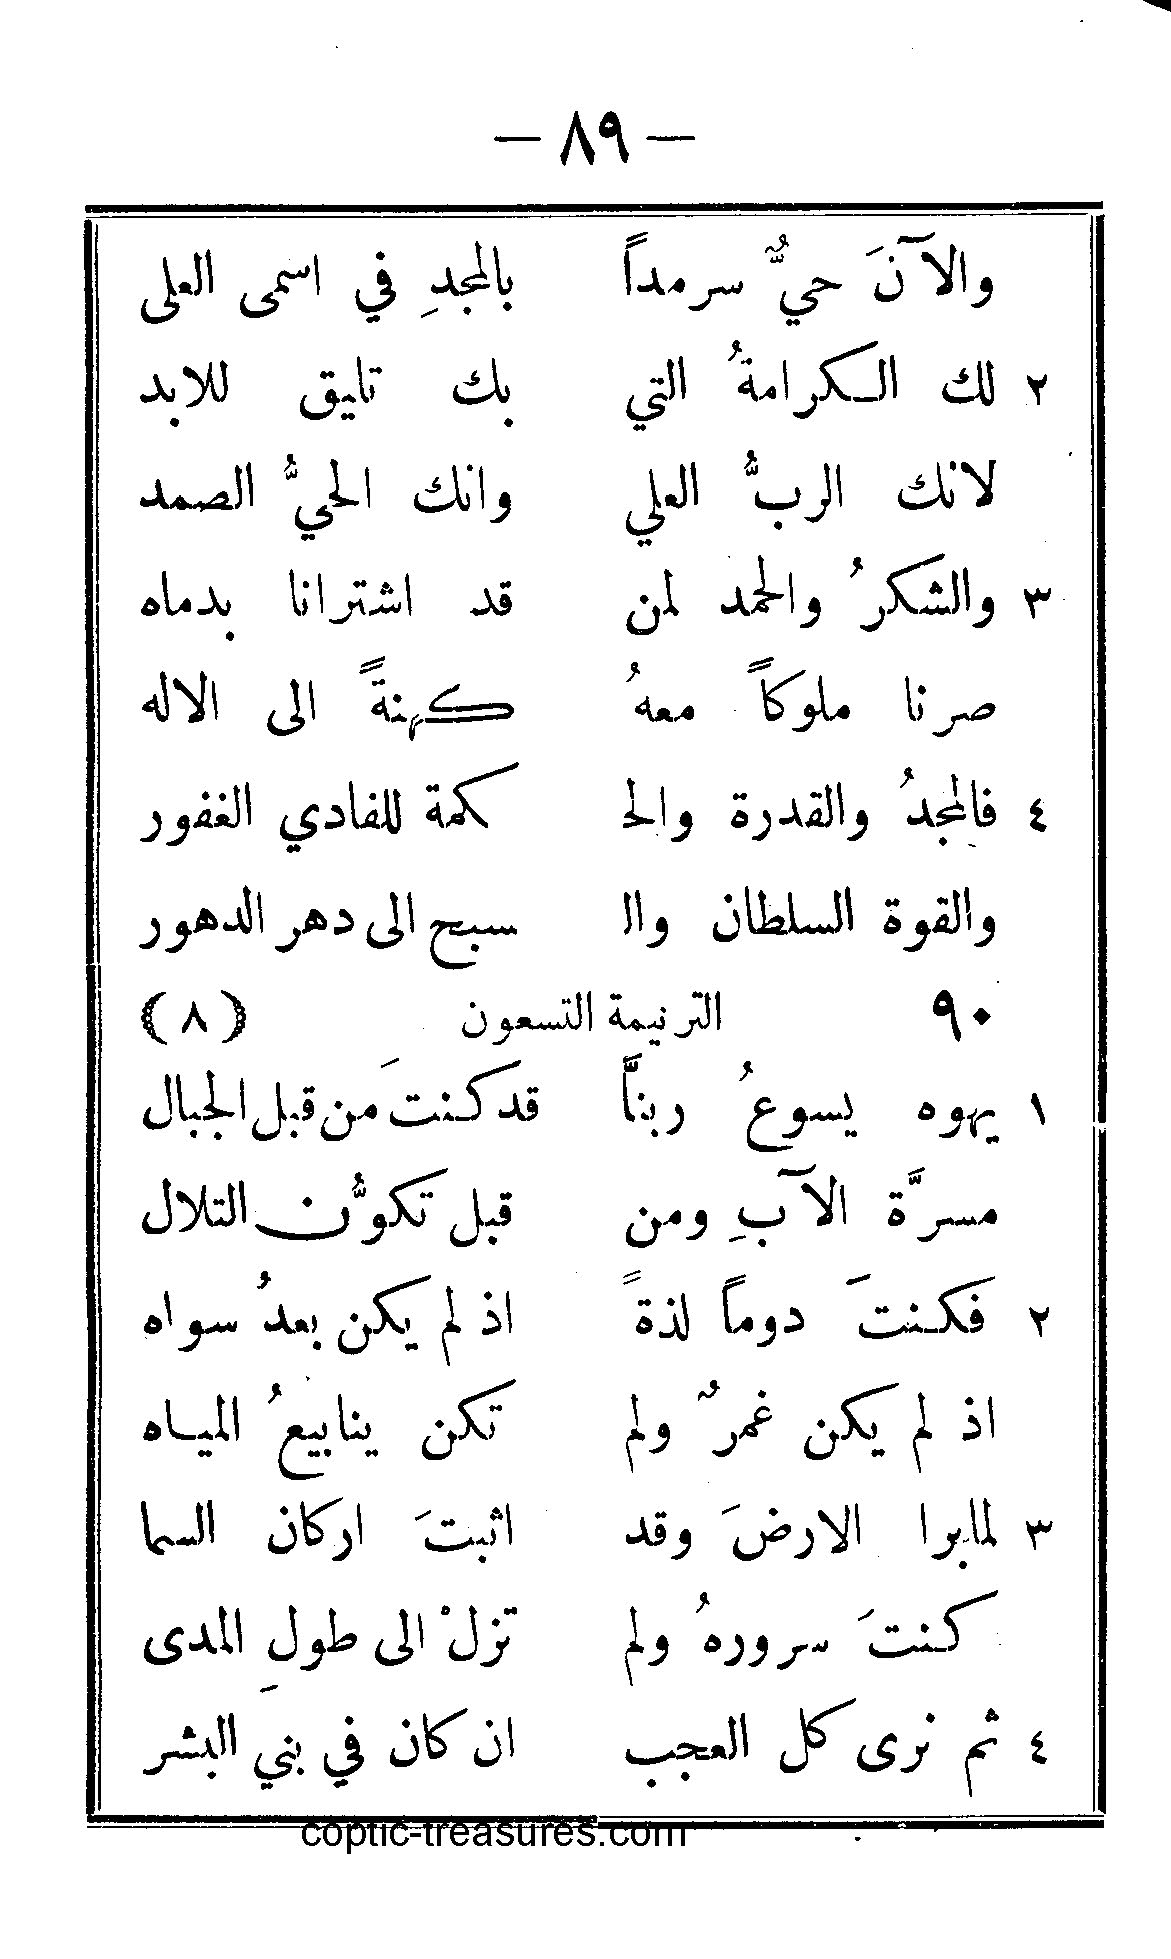 — ٨٩ —
والآنَ حيٌّ سرمداً بالمجدِ في اسمى العلى
٢ لك الكرامةُ التي بك تليق للابد
لانك الربُّ العلي وانك الحيُّ الصمد
٣ والشكرُ والحمد لمن قد اشترانا بدماه
صرنا ملوكاً معهُ كهنةً الى الاله
٤ فالمجدُ والقدرة والحـ ـكمة للفادي الغفور
والقوة السلطان والـ ـسبح الى دهر الدهور
٩٠ الترنيمة التسعون (٨)
١ يهوه يسوعُ ربنَّا قد كنتَ من قبل الجبال
مسرَّة الآبِ ومن قبل تكوُّن التلال
٢ فكنتَ دوماً لذةً اذ لم يكن بعدُ سواه
اذ لم يكن غمرٌ ولم تكن ينابيعُ المياه
٣ لما برا الارضَ وقد اثبتَ اركان السما
كنتَ سرورهُ ولم تزلْ الى طولِ المدى
٤ ثم نرى كل العجب ان كان في بني البشر
coptic-treasures.com